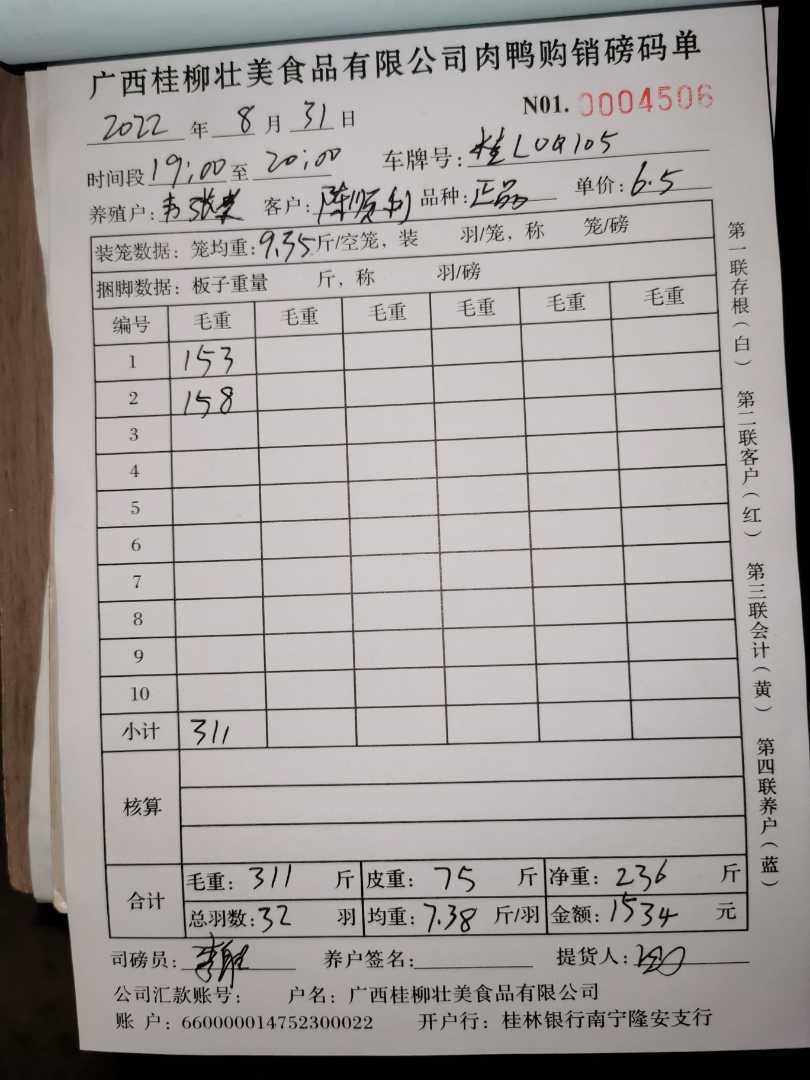 广西桂柳壮美食品有限公司肉鸭购销磅码单
N01. 0004506
2022 年 8 月 31 日
时间段 19:00 至 20:00 车牌号: 桂L0Q105
养殖户: 韦张荣 客户: 陈顺利 品种: 正品 单价: 6.5
装笼数据: 笼均重: 9.35 斤/空笼, 装 羽/笼, 称 笼/磅
捆脚数据: 板子重量 斤, 称 羽/磅
编号 毛重 毛重 毛重 毛重 毛重 毛重
1 153
2 158
3
4
5
6
7
8
9
10
小计 311
核算
合计 毛重: 311 斤 皮重: 75 斤 净重: 236 斤
总羽数: 32 羽 均重: 7.38 斤/羽 金额: 1534 元
司磅员: 养户签名: 提货人:
公司汇款账号: 户名: 广西桂柳壮美食品有限公司
账 户: 660000014752300022 开户行: 桂林银行南宁隆安支行
第一联存根(白) 第二联客户(红) 第三联会计(黄) 第四联养户(蓝)